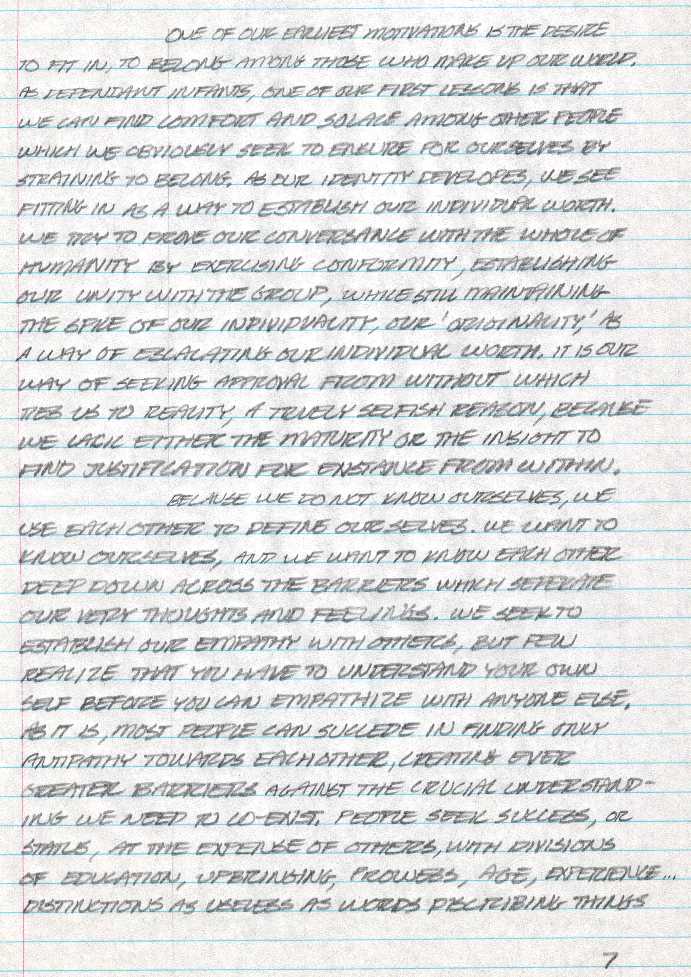 ONE OF OUR EARLIEST MOTIVATIONS IS THE DESIRE
TO FIT IN, TO BELONG AMONG THOSE WHO MAKE UP OUR WORLD.
AS DEPENDANT INFANTS, ONE OF OUR FIRST LESSONS IS THAT
WE CAN FIND COMFORT AND SOLACE AMONG OTHER PEOPLE
WHICH WE OBVIOUSLY SEEK TO ENSURE FOR OURSELVES BY
STRAINING TO BELONG. AS OUR IDENTITY DEVELOPES, WE SEE
FITTING IN AS A WAY TO ESTABLISH OUR INDIVIDUAL WORTH.
WE TRY TO PROVE OUR CONVERSANCE WITH THE WHOLE OF
HUMANITY BY EXERCISING CONFORMITY, ESTABLISHING
OUR UNITY WITH THE GROUP, WHILE STILL MAINTAINING
THE SPICE OF OUR INDIVIDUALITY, OUR 'ORIGINALITY,' AS
A WAY OF ESCALATING OUR INDIVIDUAL WORTH. IT IS OUR
WAY OF SEEKING APPROVAL FROM WITHOUT WHICH
TIES US TO REALITY, A TRUELY SELFISH REASON, BECAUSE
WE LACK EITHER THE MATURITY OR THE INSIGHT TO
FIND JUSTIFICATION FOR EXISTANCE FROM WITHIN.
BECAUSE WE DO NOT KNOW OURSELVES, WE
USE EACH OTHER TO DEFINE OURSELVES. WE WANT TO
KNOW OURSELVES, AND WE WANT TO KNOW EACH OTHER
DEEP DOWN ACROSS THE BARRIERS WHICH SEPERATE
OUR VERY THOUGHTS AND FEELINGS. WE SEEK TO
ESTABLISH OUR EMPATHY WITH OTHERS, BUT FEW
REALIZE THAT YOU HAVE TO UNDERSTAND YOUR OWN
SELF BEFORE YOU CAN EMPATHIZE WITH ANYONE ELSE.
AS IT IS, MOST PEOPLE CAN SUCCEDE IN FINDING ONLY
ANTIPATHY TOWARDS EACH OTHER, CREATING EVER
GREATER BARRIERS AGAINST THE CRUCIAL UNDERSTAND-
ING WE NEED TO CO-EXIST. PEOPLE SEEK SUCCESS, OR
STATUS, AT THE EXPENSE OF OTHERS, WITH DIVISIONS
OF EDUCATION, UPBRINGING, PROWESS, AGE, EXPERIENCE...
DISTINCTIONS AS USELESS AS WORDS DESCRIBING THINGS
7